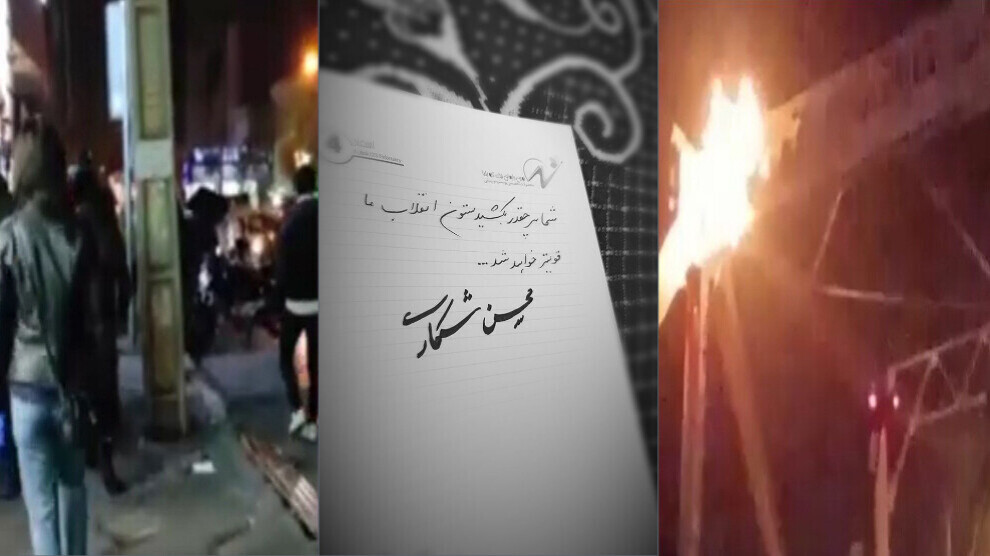 شما هرچقدر بکشید ستون انقلاب ما
قویتر خواهد شد...
محسن شکاری